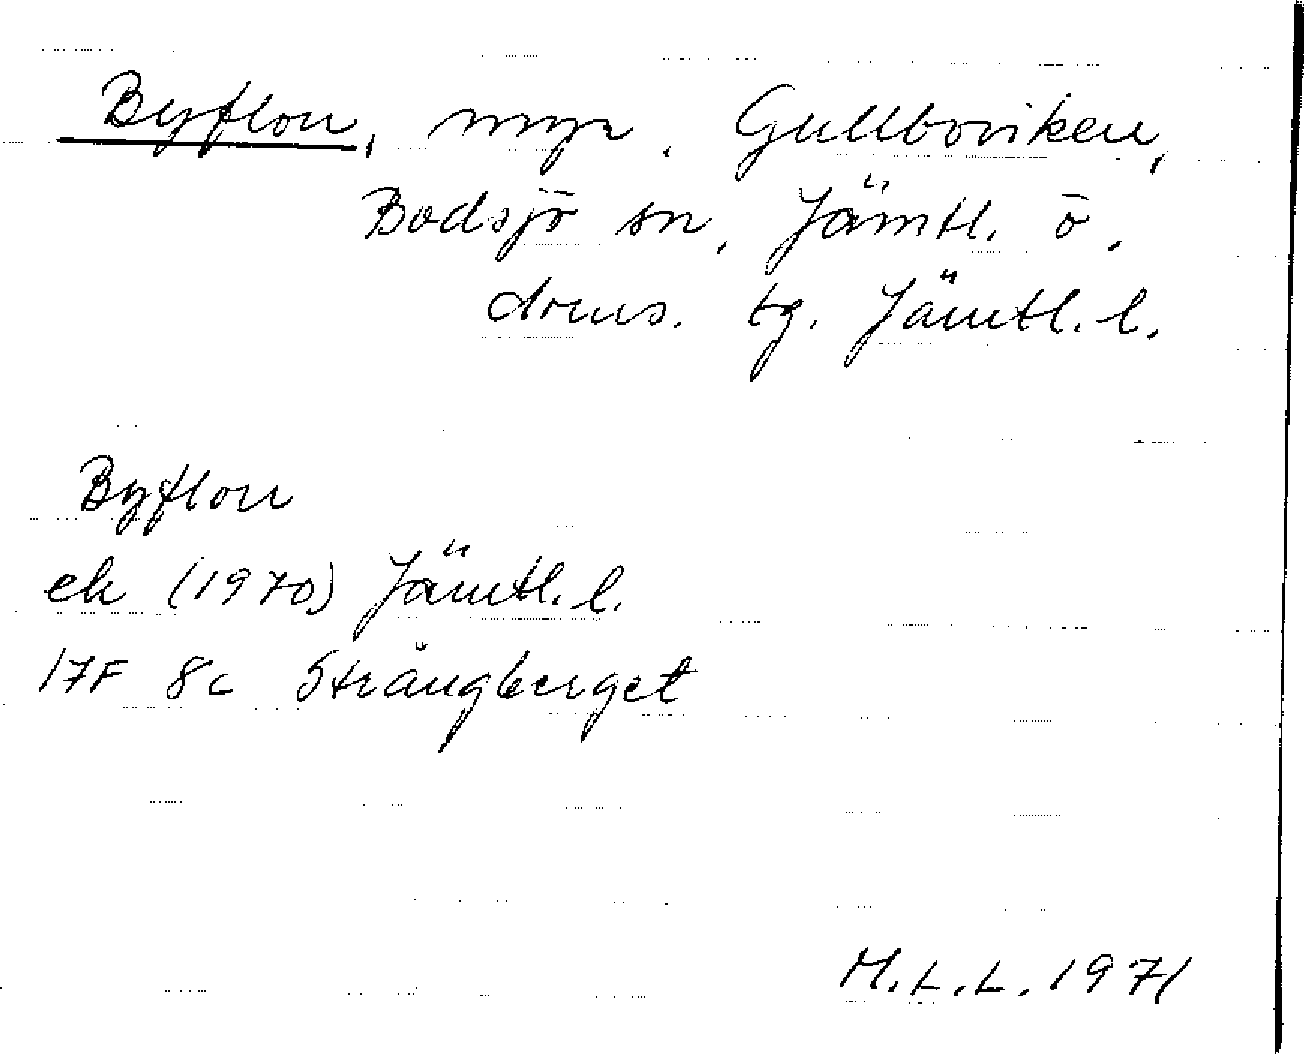 Byflon, myr, Gullboviken,
Bodsjö sn, Jämtl. ö.
doms. tg. Jämtl. l.
Byflon
ek (1970) Jämtl. l.
17F 8c Strångberget
M.L.L. 1971